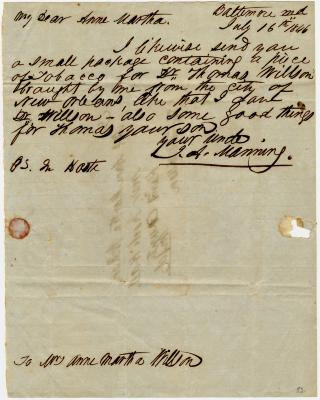 Baltimore md
July 16th 1846
My Dear Anne Martha.
I likewise send you
a small package containing a piece
of Tobacco for Dr. Thomas Willson
brought by me from the city of
New Orleans, like that I gave
Dr Willson - also some good things
for Thomas your son
your uncle
J. A. Manning.
PS. In Haste
To Mrs Anne Martha Willson